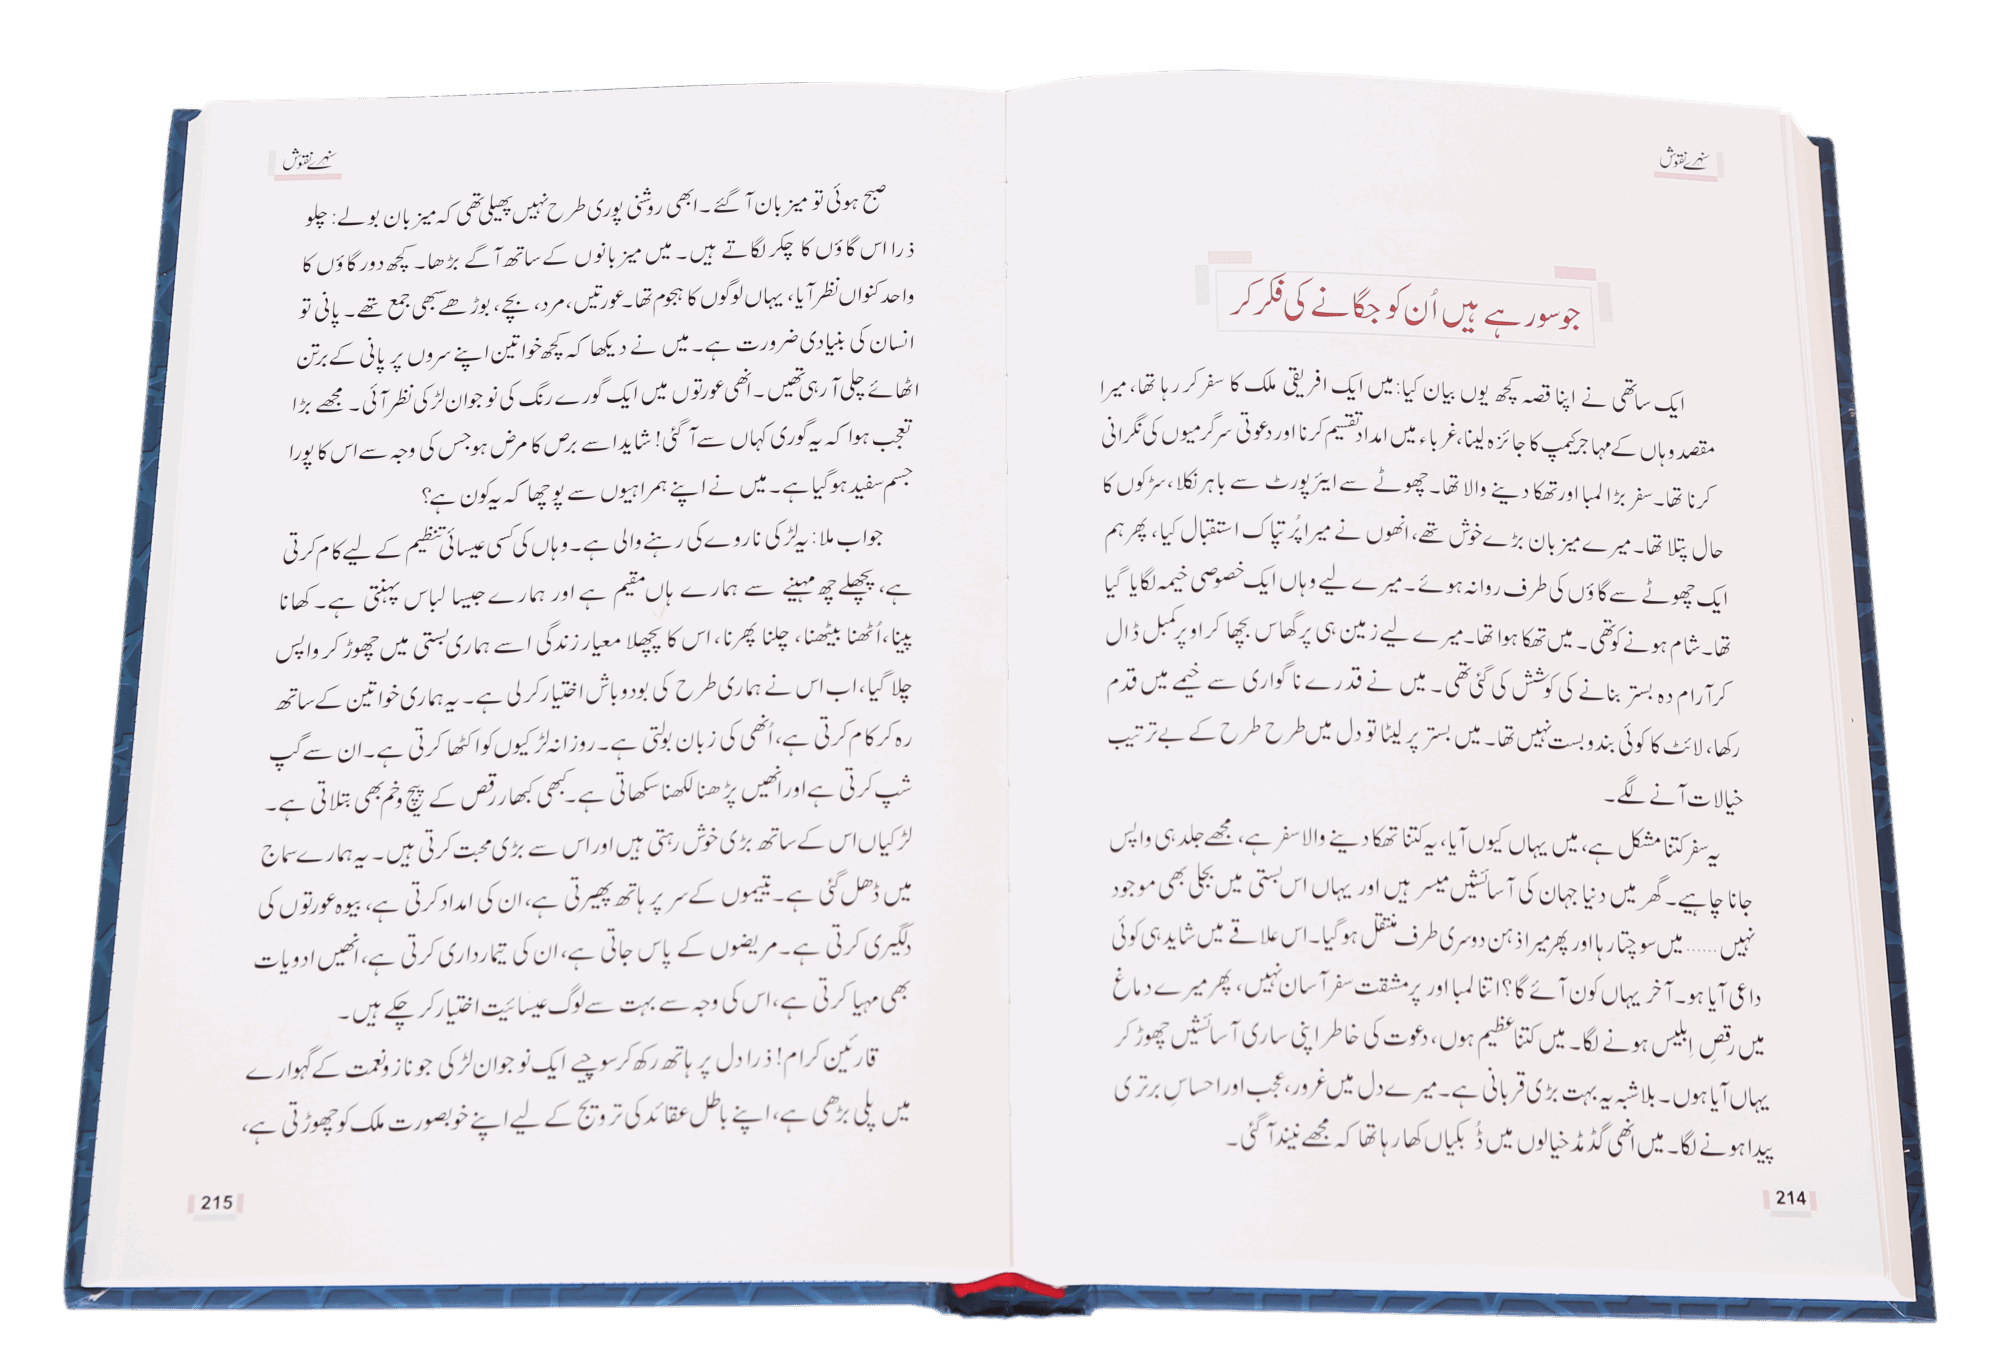 سنہرے نقوش
جو سو رہے ہیں اُن کو جگانے کی فکر کر
ایک ساتھی نے اپنا قصہ کچھ یوں بیان کیا: میں ایک افریقی ملک کا سفر کر رہا تھا، میرا
مقصد وہاں کے مہاجر کیمپ کا جائزہ لینا، غرباء میں امداد تقسیم کرنا اور دعوتی سرگرمیوں کی نگرانی
کرنا تھا۔ سفر بڑا لمبا اور تھکا دینے والا تھا۔ چھوٹے سے ایئرپورٹ سے باہر نکلا، سڑکوں کا
حال پتلا تھا۔ میرے میزبان بڑے خوش تھے، انھوں نے میرا پُر تپاک استقبال کیا، پھر ہم
ایک چھوٹے سے گاؤں کی طرف روانہ ہوئے۔ میرے لیے وہاں ایک خصوصی خیمہ لگایا گیا
تھا۔ شام ہونے کو تھی۔ میں تھکا ہوا تھا۔ میرے لیے زمین ہی پر گھاس بچھا کر اوپر کمبل ڈال
کر آرام دہ بستر بنانے کی کوشش کی گئی تھی۔ میں نے قدرے ناگواری سے خیمے میں قدم
رکھا، لائٹ کا کوئی بندوبست نہیں تھا۔ میں بستر پر لیٹا تو دل میں طرح طرح کے بے ترتیب
خیالات آنے لگے۔
یہ سفر کتنا مشکل ہے، میں یہاں کیوں آیا، یہ کتنا تھکا دینے والا سفر ہے، مجھے جلد ہی واپس
جانا چاہیے۔ گھر میں دنیا جہان کی آسائشیں میسر ہیں اور یہاں اس بستی میں بجلی بھی موجود
نہیں...... میں سوچتا رہا اور پھر میرا ذہن دوسری طرف منتقل ہو گیا۔ اس علاقے میں شاید ہی کوئی
داعی آیا ہو۔ آخر یہاں کون آئے گا؟ اتنا لمبا اور پر مشقت سفر آسان نہیں، پھر میرے دماغ
میں رقصِ اِبلیس ہونے لگا۔ میں کتنا عظیم ہوں، دعوت کی خاطر اپنی ساری آسائشیں چھوڑ کر
یہاں آیا ہوں۔ بلاشبہ یہ بہت بڑی قربانی ہے۔ میرے دل میں غرور، عجب اور احساسِ برتری
پیدا ہونے لگا۔ میں انھی گڈمڈ خیالوں میں ڈُبکیاں کھا رہا تھا کہ مجھے نیند آ گئی۔
214
سنہرے نقوش
صبح ہوئی تو میزبان آ گئے۔ ابھی روشنی پوری طرح نہیں پھیلی تھی کہ میزبان بولے: چلو
ذرا اس گاؤں کا چکر لگاتے ہیں۔ میں میزبانوں کے ساتھ آگے بڑھا۔ کچھ دور گاؤں کا
واحد کنواں نظر آیا، یہاں لوگوں کا ہجوم تھا۔ عورتیں، مرد، بچے، بوڑھے سبھی جمع تھے۔ پانی تو
انسان کی بنیادی ضرورت ہے۔ میں نے دیکھا کہ کچھ خواتین اپنے سروں پر پانی کے برتن
اٹھائے چلی آ رہی تھیں۔ انھی عورتوں میں ایک گورے رنگ کی نوجوان لڑکی نظر آئی۔ مجھے بڑا
تعجب ہوا کہ یہ گوری کہاں سے آ گئی! شاید اسے برص کا مرض ہو جس کی وجہ سے اس کا پورا
جسم سفید ہو گیا ہے۔ میں نے اپنے ہمراہیوں سے پوچھا کہ یہ کون ہے؟
جواب ملا: یہ لڑکی ناروے کی رہنے والی ہے۔ وہاں کی کسی عیسائی تنظیم کے لیے کام کرتی
ہے، پچھلے چھ مہینے سے ہمارے ہاں مقیم ہے اور ہمارے جیسا لباس پہنتی ہے۔ کھانا
پینا، اُٹھنا بیٹھنا، چلنا پھرنا، اس کا پچھلا معیار زندگی اسے ہماری بستی میں چھوڑ کر واپس
چلا گیا، اب اس نے ہماری طرح کی بود و باش اختیار کر لی ہے۔ یہ ہماری خواتین کے ساتھ
رہ کر کام کرتی ہے، اُنھی کی زبان بولتی ہے۔ روزانہ لڑکیوں کو اکٹھا کرتی ہے۔ ان سے گپ
شپ کرتی ہے اور انھیں پڑھنا لکھنا سکھاتی ہے۔ کبھی کبھار رقص کے پیچ وخم بھی بتلاتی ہے۔
لڑکیاں اس کے ساتھ بڑی خوش رہتی ہیں اور اس سے بڑی محبت کرتی ہیں۔ یہ ہمارے سماج
میں ڈھل گئی ہے۔ یتیموں کے سر پر ہاتھ پھیرتی ہے، ان کی امداد کرتی ہے، بیوہ عورتوں کی
دلگیری کرتی ہے۔ مریضوں کے پاس جاتی ہے، ان کی تیمارداری کرتی ہے، انھیں ادویات
بھی مہیا کرتی ہے، اس کی وجہ سے بہت سے لوگ عیسائیت اختیار کر چکے ہیں۔
قارئین کرام! ذرا دل پر ہاتھ رکھ کر سوچیے ایک نوجوان لڑکی جو ناز و نعمت کے گہوارے
میں پلی بڑھی ہے، اپنے باطل عقائد کی ترویج کے لیے اپنے خوبصورت ملک کو چھوڑتی ہے،
215